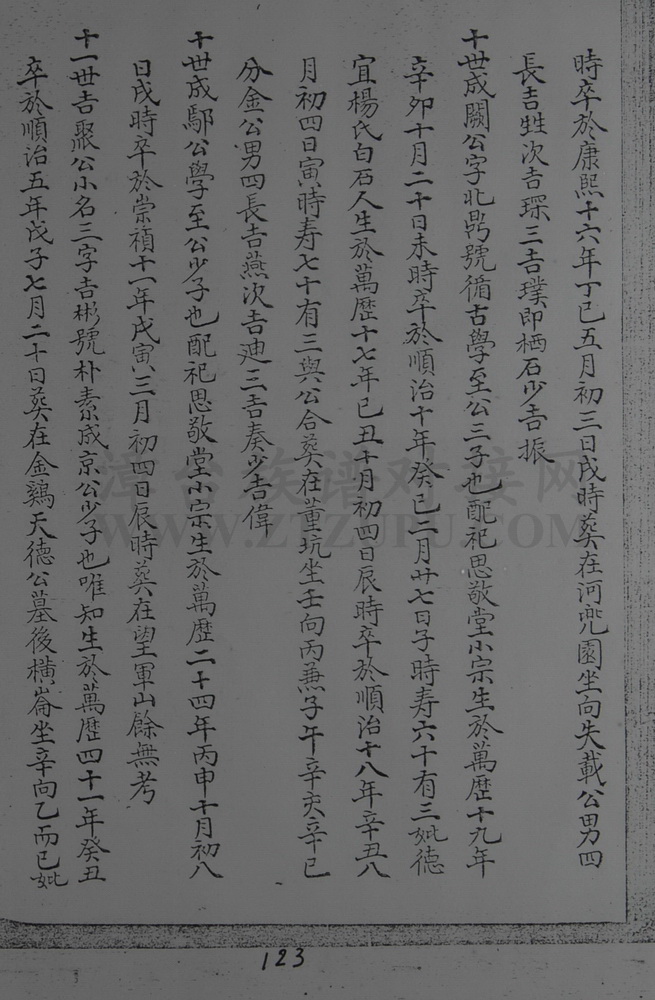 時卒於康熙十六年丁巳五月初三日戌時葬在河兜園坐向失載公男四
長吉甡次吉琛三吉璞即栖石少吉振
十世成闕公字北鼎號循古學至公三子也配祀思敬堂小宗生於萬曆十九年
辛卯十月二十日未時卒於順治十年癸巳二月廿七日子時寿六十有三妣德
宜楊氏白石人生於萬曆十七年己丑十月初四日辰時卒於順治十八年辛丑八
月初四日寅時寿七十有三與公合葬在董坑坐壬向丙兼子午辛亥辛巳
分金公男四長吉燕次吉迪三吉奏少吉偉
十世成鄢公學至公少子也配祀思敬堂小宗生於萬曆二十四年丙申十月初八
日戌時卒於崇禎十一年戊寅三月初四日辰時葬在望軍山餘無考
十一世吉聚公小名三字吉彬號朴素成京公少子也唯知生於萬曆四十一年癸丑
卒於順治五年戊子七月二十日葬在金鷄天德公墓後橫崙坐辛向乙而已妣
漳台族谱对接网
WWW.ZTZUPU.COM
123